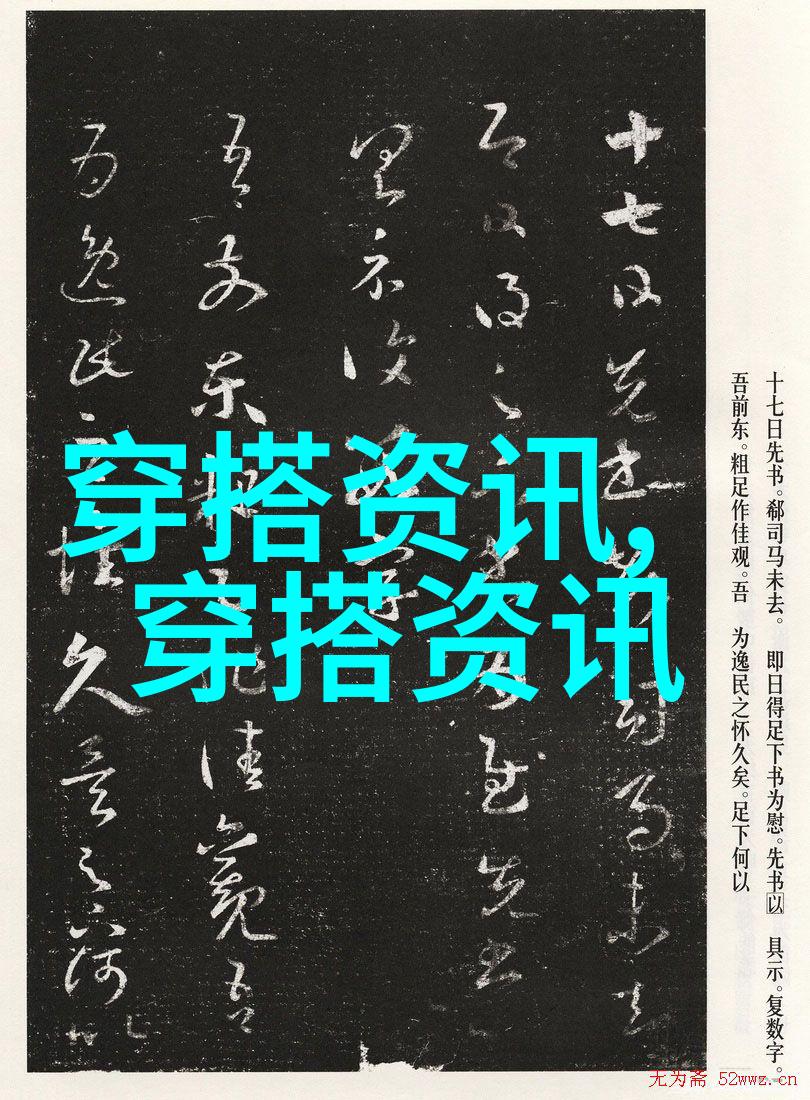 十七日先书郗司马未去
即日得足下书为慰先书
具示复数字
吾前东粗足作佳观吾
为逸民之怀久矣足下何以
穿搭资讯,
穿搭资讯
十七日先书。郗司马未去。 即日得足下书为慰。先书以 具示。复数字。
吾前东。粗足作佳观。吾 为逸民之怀久矣。足下何以
无为斋 52wwz.cn